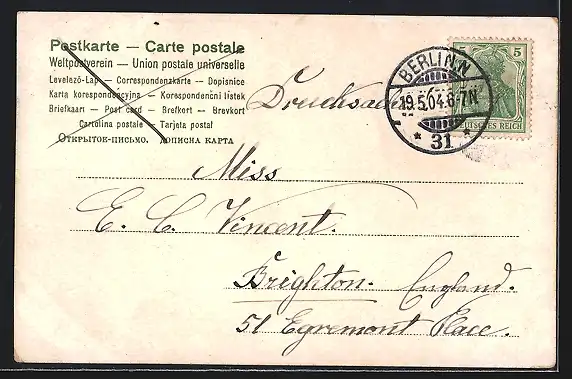 Postkarte — Carte postale
Weltpostverein — Union postale universelle
Levelező-Lap — Correspondenzkarte — Dopisnice
Karta korespondencyjna — Korespondenční lístek
Briefkaart — Post card — Brefkort — Brevkort
Cartolina postale — Tarjeta postal
Открытое-письмо. Дописна карта
Drucksache
BERLIN.N
19.5.04.6-7N
* 31 *
5
DEUTSCHES REICH
Miss
E. C. Vincent.
Brighton. England.
51 Egremont Place.